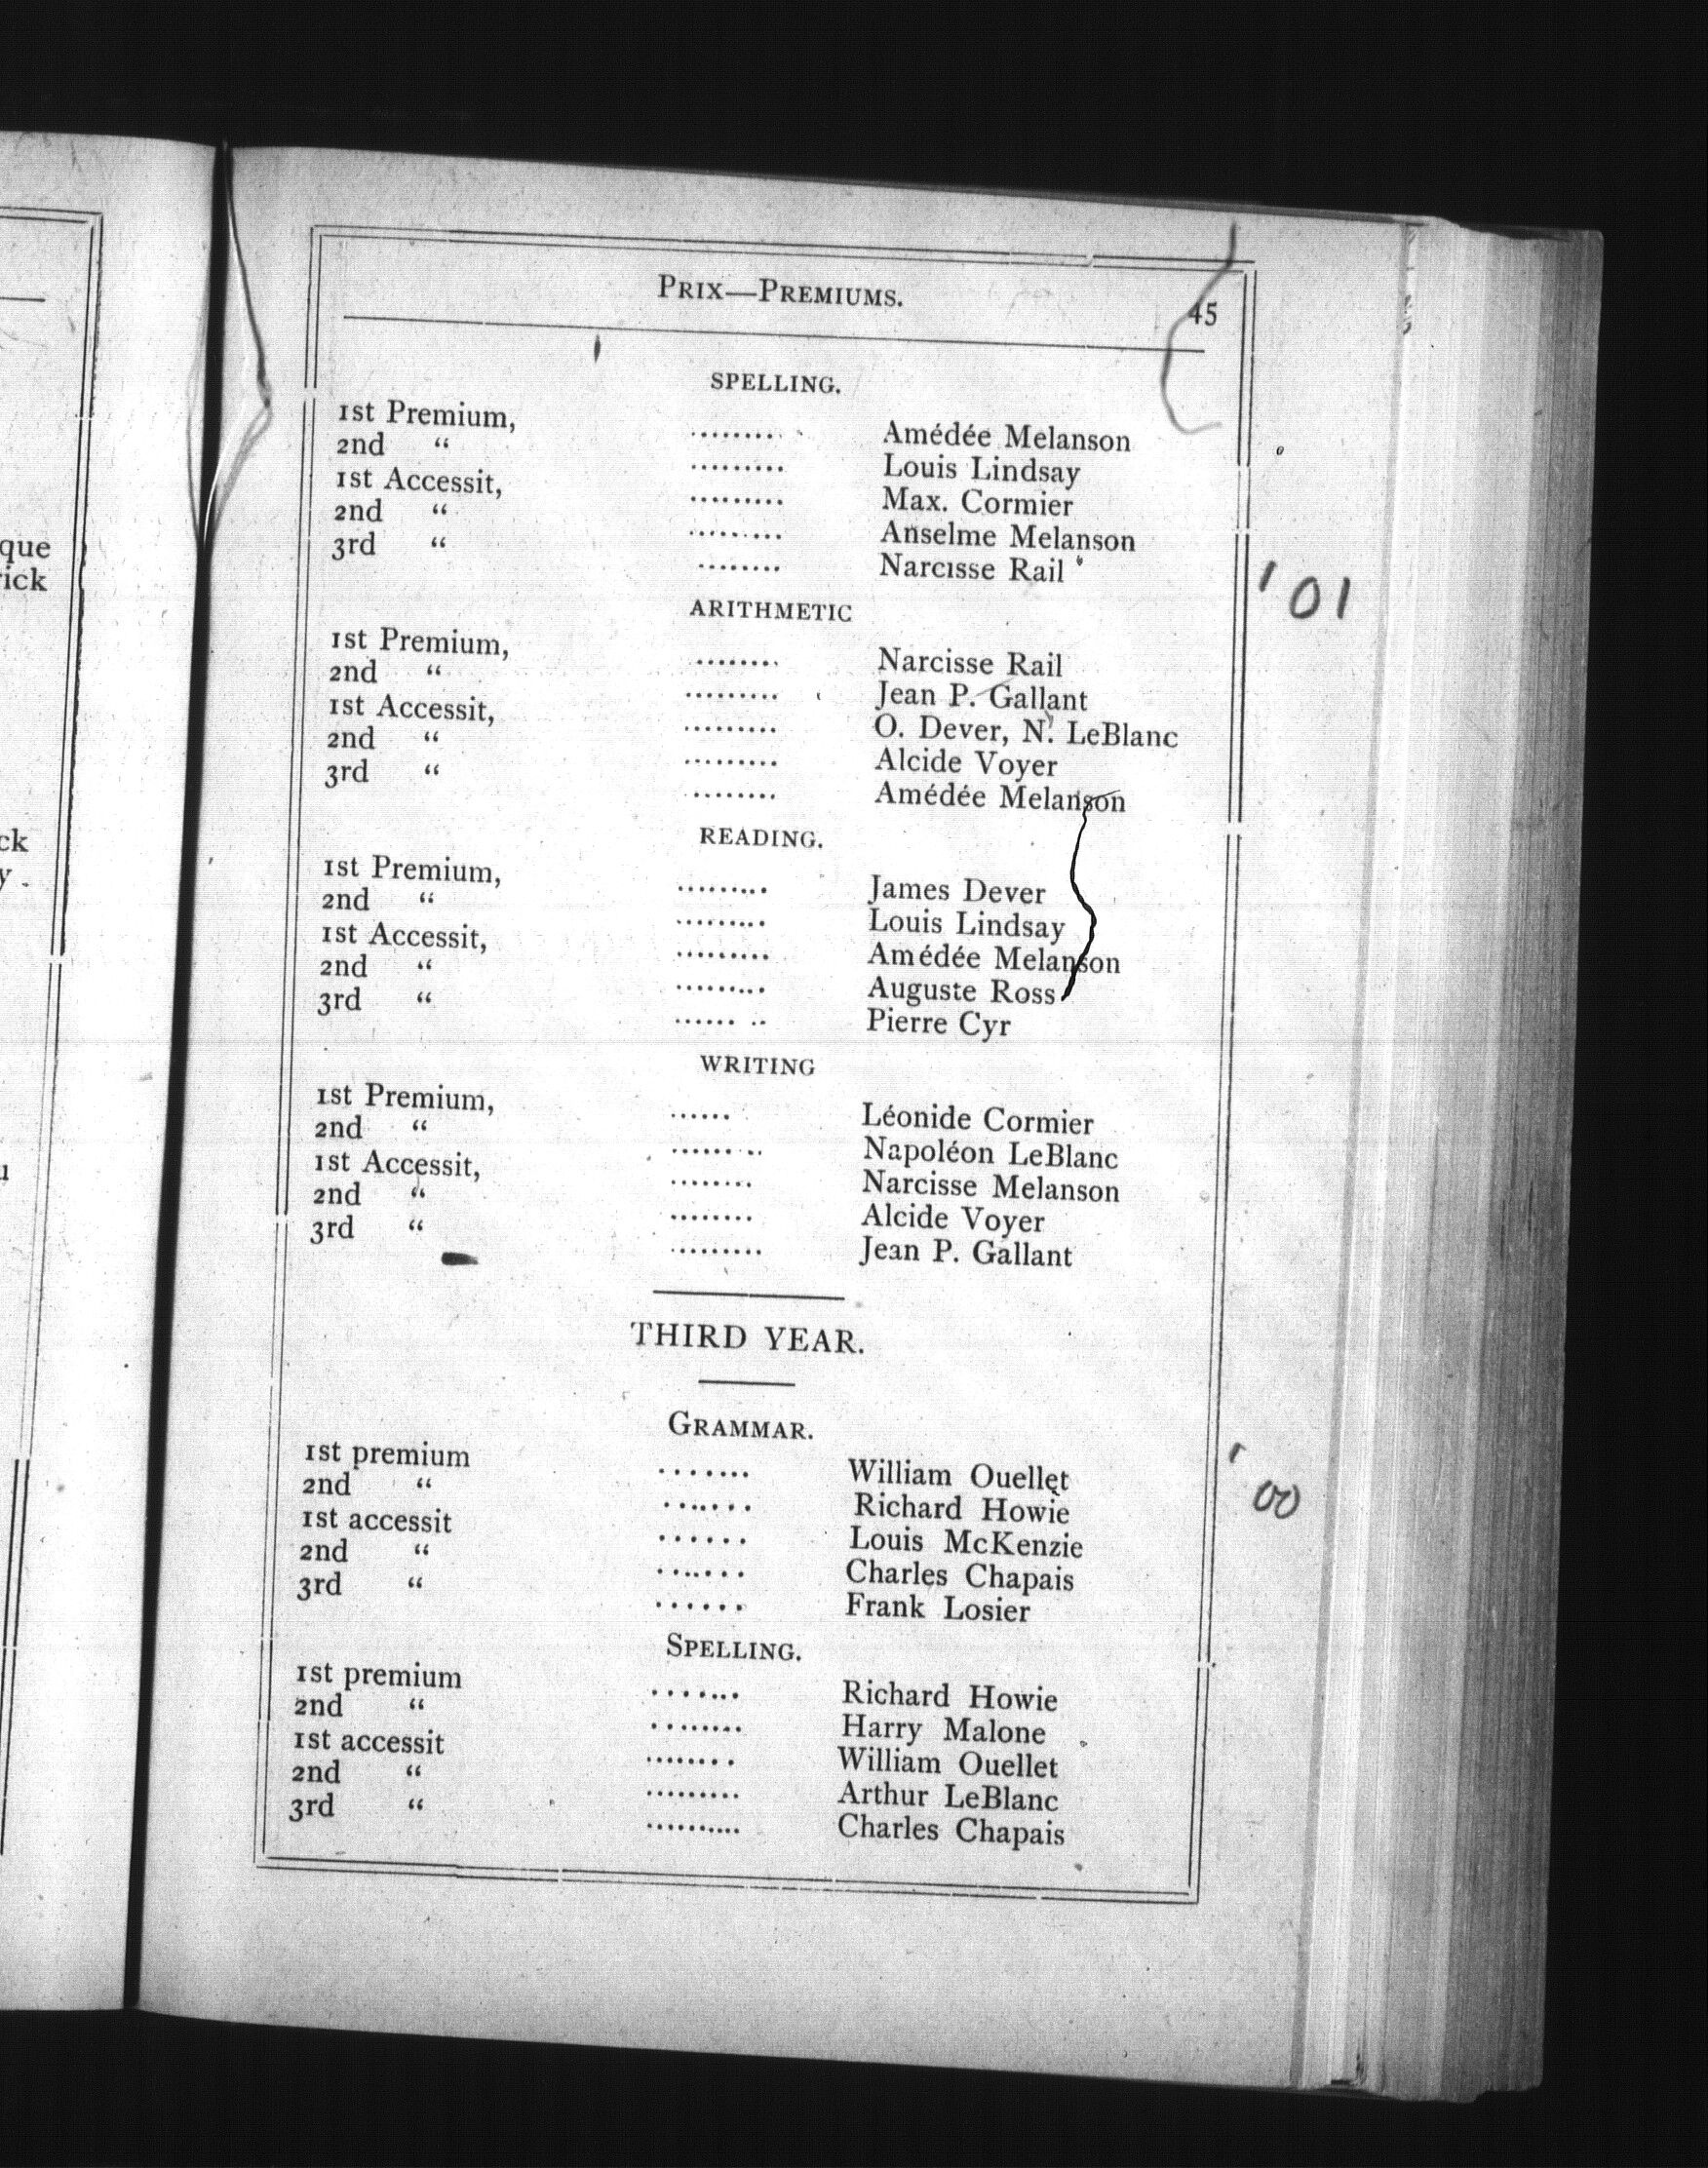 PRIX—PREMIUMS. 45
SPELLING.
1st Premium, ......... Amédée Melanson
2nd “ ......... Louis Lindsay
1st Accessit, ......... Max. Cormier
2nd “ ......... Anselme Melanson
3rd “ ........ Narcisse Rail
ARITHMETIC
1st Premium, ........ Narcisse Rail
2nd “ ......... Jean P. Gallant
1st Accessit, ......... O. Dever, N. LeBlanc
2nd “ ......... Alcide Voyer
3rd “ ........ Amédée Melanson
READING.
1st Premium, ......... James Dever
2nd “ ......... Louis Lindsay
1st Accessit, ......... Amédée Melanson
2nd “ ......... Auguste Ross
3rd “ ...... .. Pierre Cyr
WRITING
1st Premium, ...... Léonide Cormier
2nd “ ...... .. Napoléon LeBlanc
1st Accessit, ........ Narcisse Melanson
2nd “ ........ Alcide Voyer
3rd “ ......... Jean P. Gallant
THIRD YEAR.
GRAMMAR.
1st premium ....... William Ouellet
2nd “ ....... Richard Howie
1st accessit ...... Louis McKenzie
2nd “ ....... Charles Chapais
3rd “ ...... Frank Losier
SPELLING.
1st premium ....... Richard Howie
2nd “ ........ Harry Malone
1st accessit ........ William Ouellet
2nd “ ......... Arthur LeBlanc
3rd “ .......... Charles Chapais
'01
'00
que
ick
ck
y